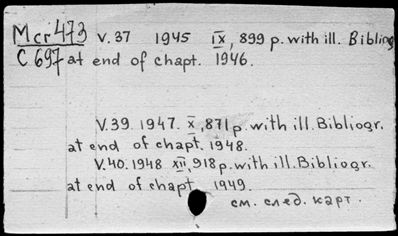 Mcr473 v.37 1945 IX, 899 p. with ill. Bibliog
C 697 at end of chapt. 1946.
V.39. 1947. X, 871 p. with ill. Bibliogr.
at end of chapt. 1948.
V.40. 1948 XII, 918 p. with ill. Bibliogr.
at end of chapt 1949.
см. след. карт.